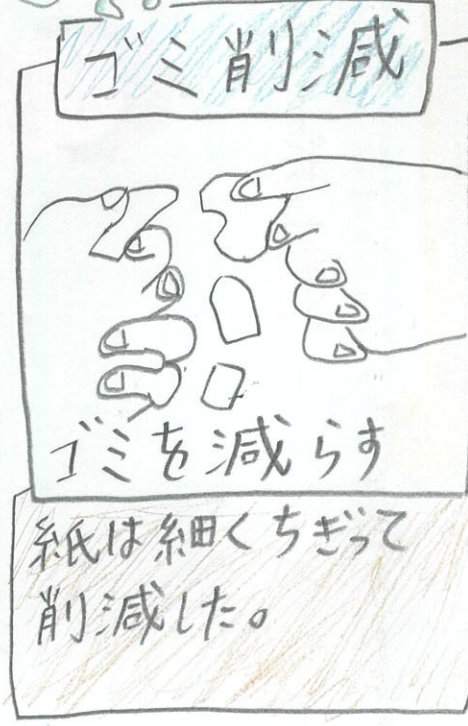 ゴミ削減
ゴミを減らす
紙は細くちぎって
削減した。